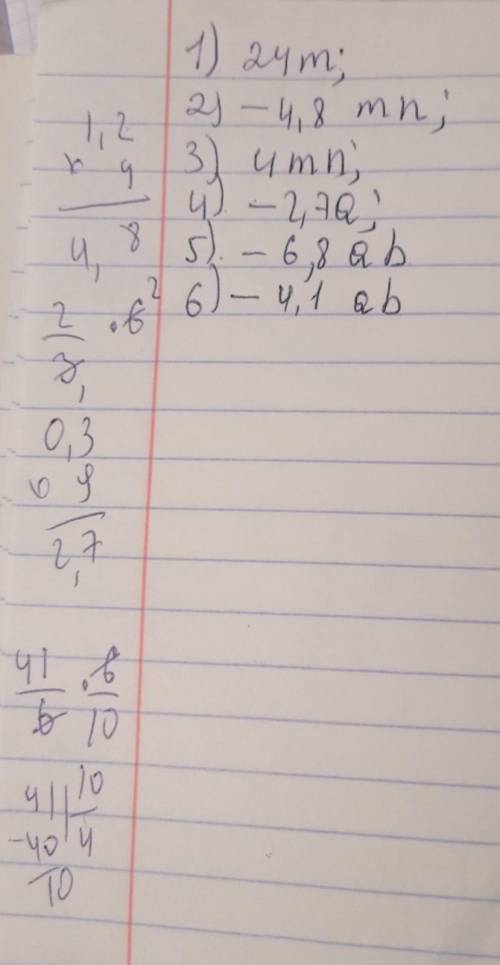 1) 24m;
2) - 4,8 mn;
3) 4mn;
4) - 2,7a;
5) - 6,8 ab
6) - 4,1 ab
1,2
× 4
4,8
2/3 · 6 2
0,3
9
2,7
41/6 · 6/10
41 | 10
-40 | 4
10